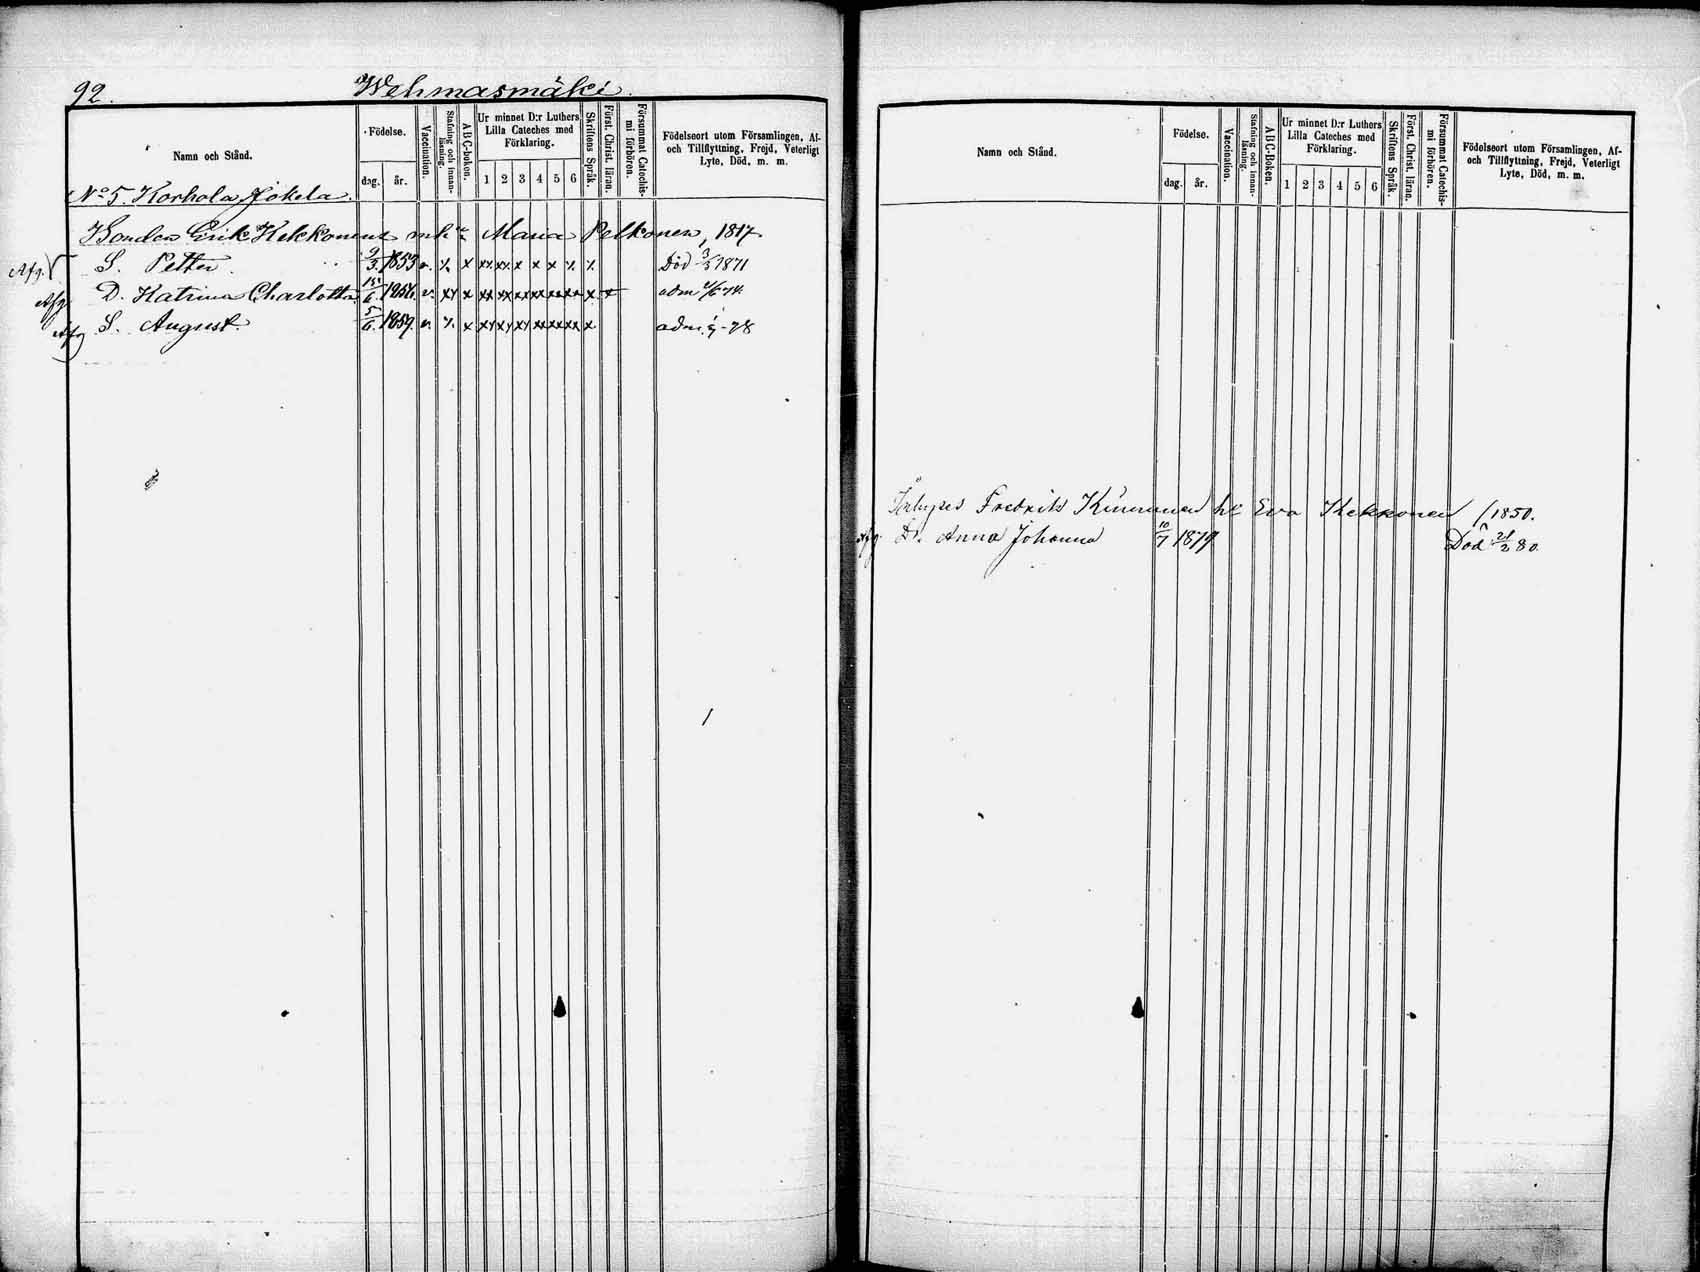 92.
Wehmasmäki.
Namn och Stånd.
Födelse.
dag.
år.
Vaccination.
Stafning och innan-läsning.
A B C-boken.
Ur minnet D:r Luthers Lilla Cateches med Förklaring.
1 2 3 4 5 6
Skriftens Språk.
Först. Christ. läran.
Försummat Catechis-mi förhören.
Födelseort utom Församlingen, Af- och Tillflyttning, Frejd, Veterligt Lyte, Död, m. m.
No 5. Korhola, Jokela.
Bonden Erik Kekkonens m h:u Maria Pelkonen, 1817
Afg. S. Petter 9/3 1853 v. Död 3/3 1871
Afg D. Katrina Charlotta 1856 v. adm 74
Afg S. August 5/6 1859 v. adm. -78
Namn och Stånd.
Födelse.
dag.
år.
Vaccination.
Stafning och innan-läsning.
A B C-Boken.
Ur minnet D:r Luthers Lilla Cateches med Förklaring.
1 2 3 4 5 6
Skriftens Språk.
Först. Christ. läran.
Försummat Catechis-mi förhören.
Födelseort utom Församlingen, Af- och Tillflyttning, Frejd, Veterligt Lyte, Död, m. m.
Fredrik Kinnunen h:u Eva Kekkonen / 1850.
Afg D. Anna Johanna 10/7 1879 Död 21/2 80.